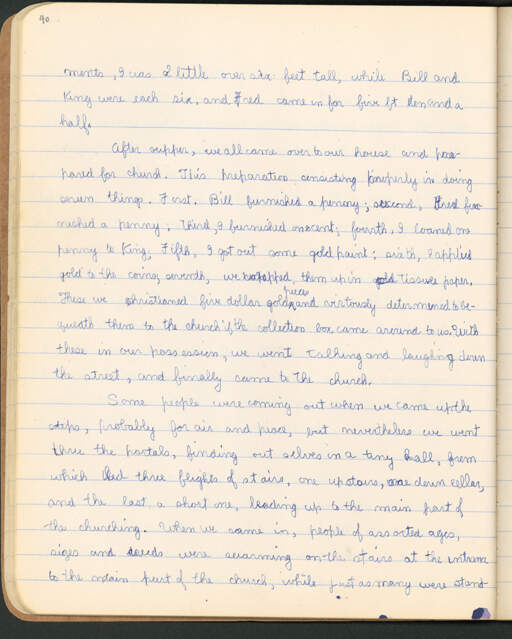 90
ments, I was a little over six feet tall, while Bill and
King were each six, and Fred came in for five ft ten and a
half.
After supper, we all came over to our house and pre-
pared for church. This preparation consisting properly in doing
seven things. First. Bill furnished a penny; second, Fred fur-
nished a penny. Third, I furnished one cent; fourth, I loaned one
penny to King; Fifth, I got out some gold paint; sixth, I applied
gold to the coins; seventh, we wrapped them up in tissue paper.
These we christianed five dollar gold pieces and virtously determined to be-
queath them to the church if the collection box came around to us. With
these in our possession, we went talking and laughing down
the street, and finally came to the church.
Some people were coming out when we came up the
steps, probably for air and peace, but nevertheless we went
thru the portals, finding out selves in a tiny hall, from
which led three flights of stairs, one upstairs, one down cellar,
and the last a short one, leading up to the main part of
the churching. When we came in, people of assorted ages,
sizes and were swarming on the stairs at the entrance
to the main part of the church, while just as many were stand-